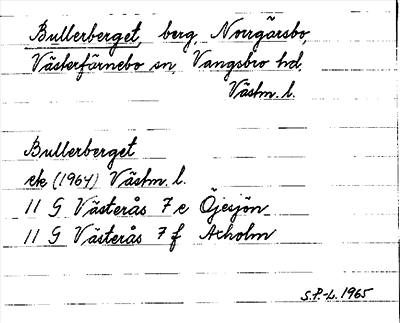 Bullerberget, berg, Norrgärsbo,
Västerfärnebo sn, Vangsbro hd,
Västm. l.
Bullerberget
ek (1964) Västm. l.
11 G Västerås 7 e Öjesjön
11 G Västerås 7 f Axholm
S.P.-L. 1965